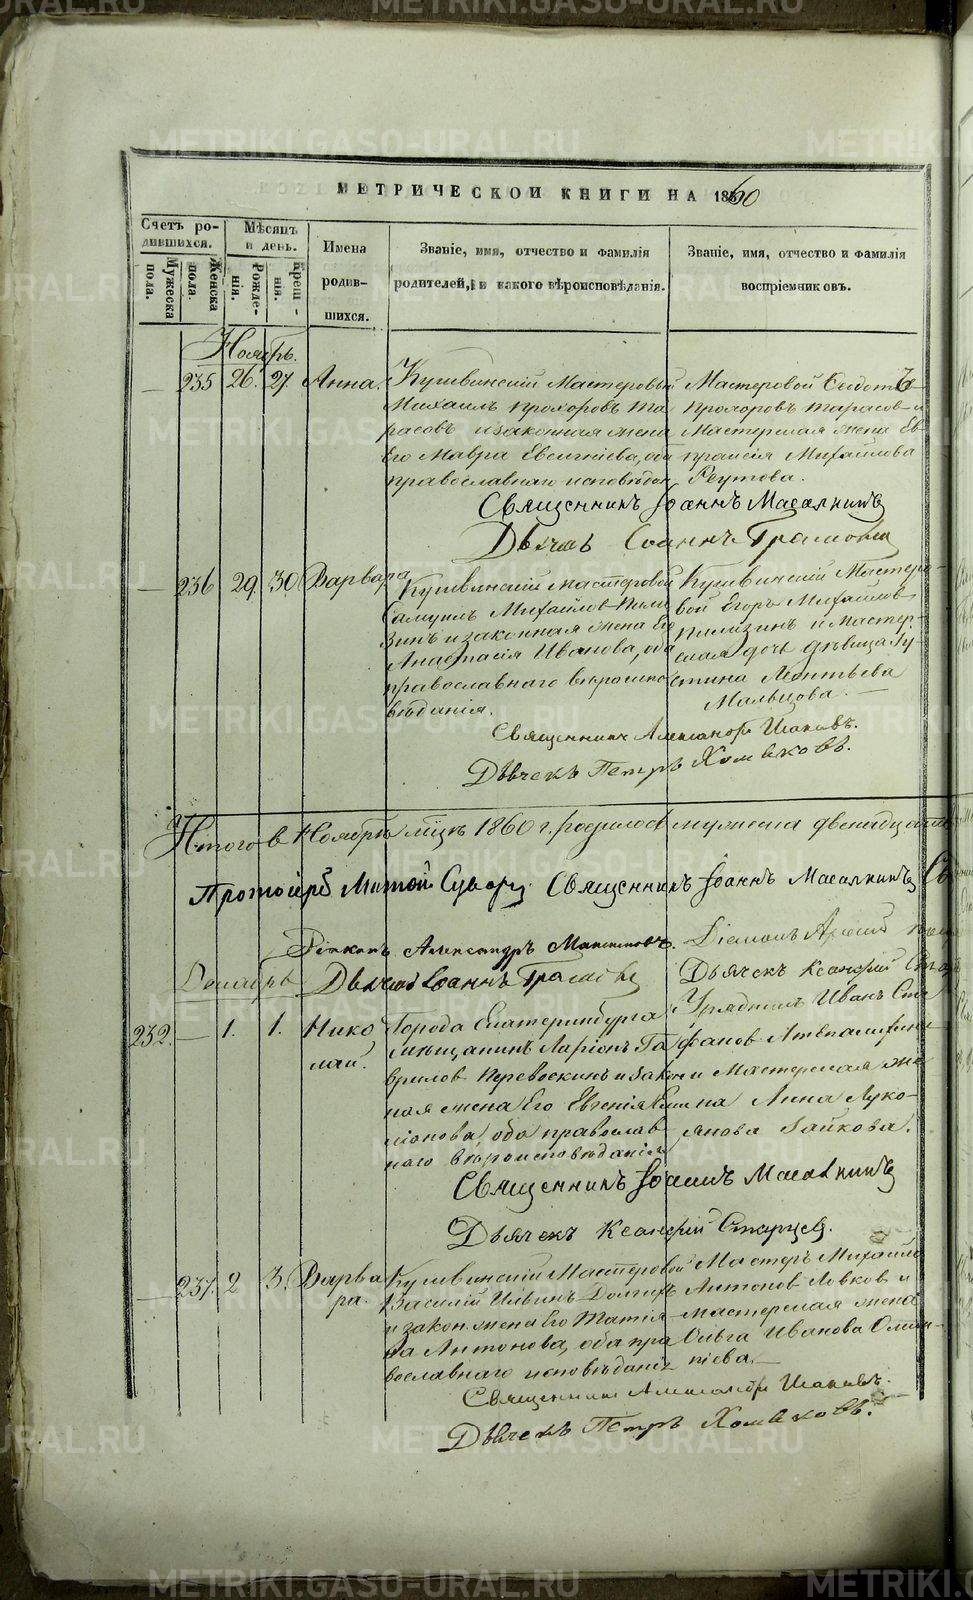 МЕТРИЧЕСКОЙ КНИГИ НА 1860
Счетъ ро-
дившихся.
Мужеска пола.
Женска пола.
Мѣсяцъ
и день.
Рожде-
нія.
Крещ-
нія.
Имена
родив-
шихся.
Званіе, имя, отчество и фамилія
родителей, и какого вѣроисповѣданія.
Званіе, имя, отчество и фамилія
воспріемниковъ.
Ноябрь.
— 235 26. 27. Анна.
Кушвинскій Мастеровый
Михаилъ Прохоровъ Та-
расовъ и законная жена
Его Мавра Евсигніева, оба
православнаго исповѣдан.
Мастеровой Федотъ
Прохоровъ Тарасов и
Мастерская жена Ев
праксія Михайлова
Реутова.
Священникъ Іоаннъ
Дьячекъ Іоаннъ
— 236 29. 30. Варвара
Кушвинскій мастеровой
Самуилъ Михайлов Пили
зинъ и законная жена Его
Анастасія Иванова, оба
православнаго вѣроиспо
вѣданія.
Кушвинскій Мастеро-
вой Егоръ Михайлов
Пилизинъ и Мастер-
ская дочь дѣвица Гу-
стина Леонтьева
Мальцова. —
Священникъ Александръ
Дьячекъ Петръ Хомяковъ.
Итого в Ноябрѣ мцѣ 1860 г. родилося мужеска двенадцать
Протоіерей Священникъ Іоаннъ
Діаконъ Александръ
Діаконъ
Декабрь
Дьячекъ Іоаннъ
Дьячекъ Ксенофонтъ
232. — 1. 1. Нико
лай.
Города Екатеринбурга
мѣщанинъ Ларіонъ Га
врилов Перевоскинъ и закон
ная жена Его Евгенія
ліонова, оба православ
наго вѣроисповѣданія
Урядникъ Иванъ Сте
фанов
и Мастерская же
на Анна Луко-
янова Зайкова.
Священникъ Іоаннъ
Дьячекъ Ксенофонтъ Старцев.
— 237. 2 3. Варва
ра.
Кушвинскій Мастеровой
Василій Ильинъ Долгихъ
и закон. жена Его Татія
на Антонова, оба пра
вославнаго исповѣданія
Мастеръ Михайло
Антонов Ловков и
Мастерская жена
Ольга Иванова
Священникъ Александръ
Дьячекъ Петръ Хомяковъ.
METRIKI.GASO-URAL.RU